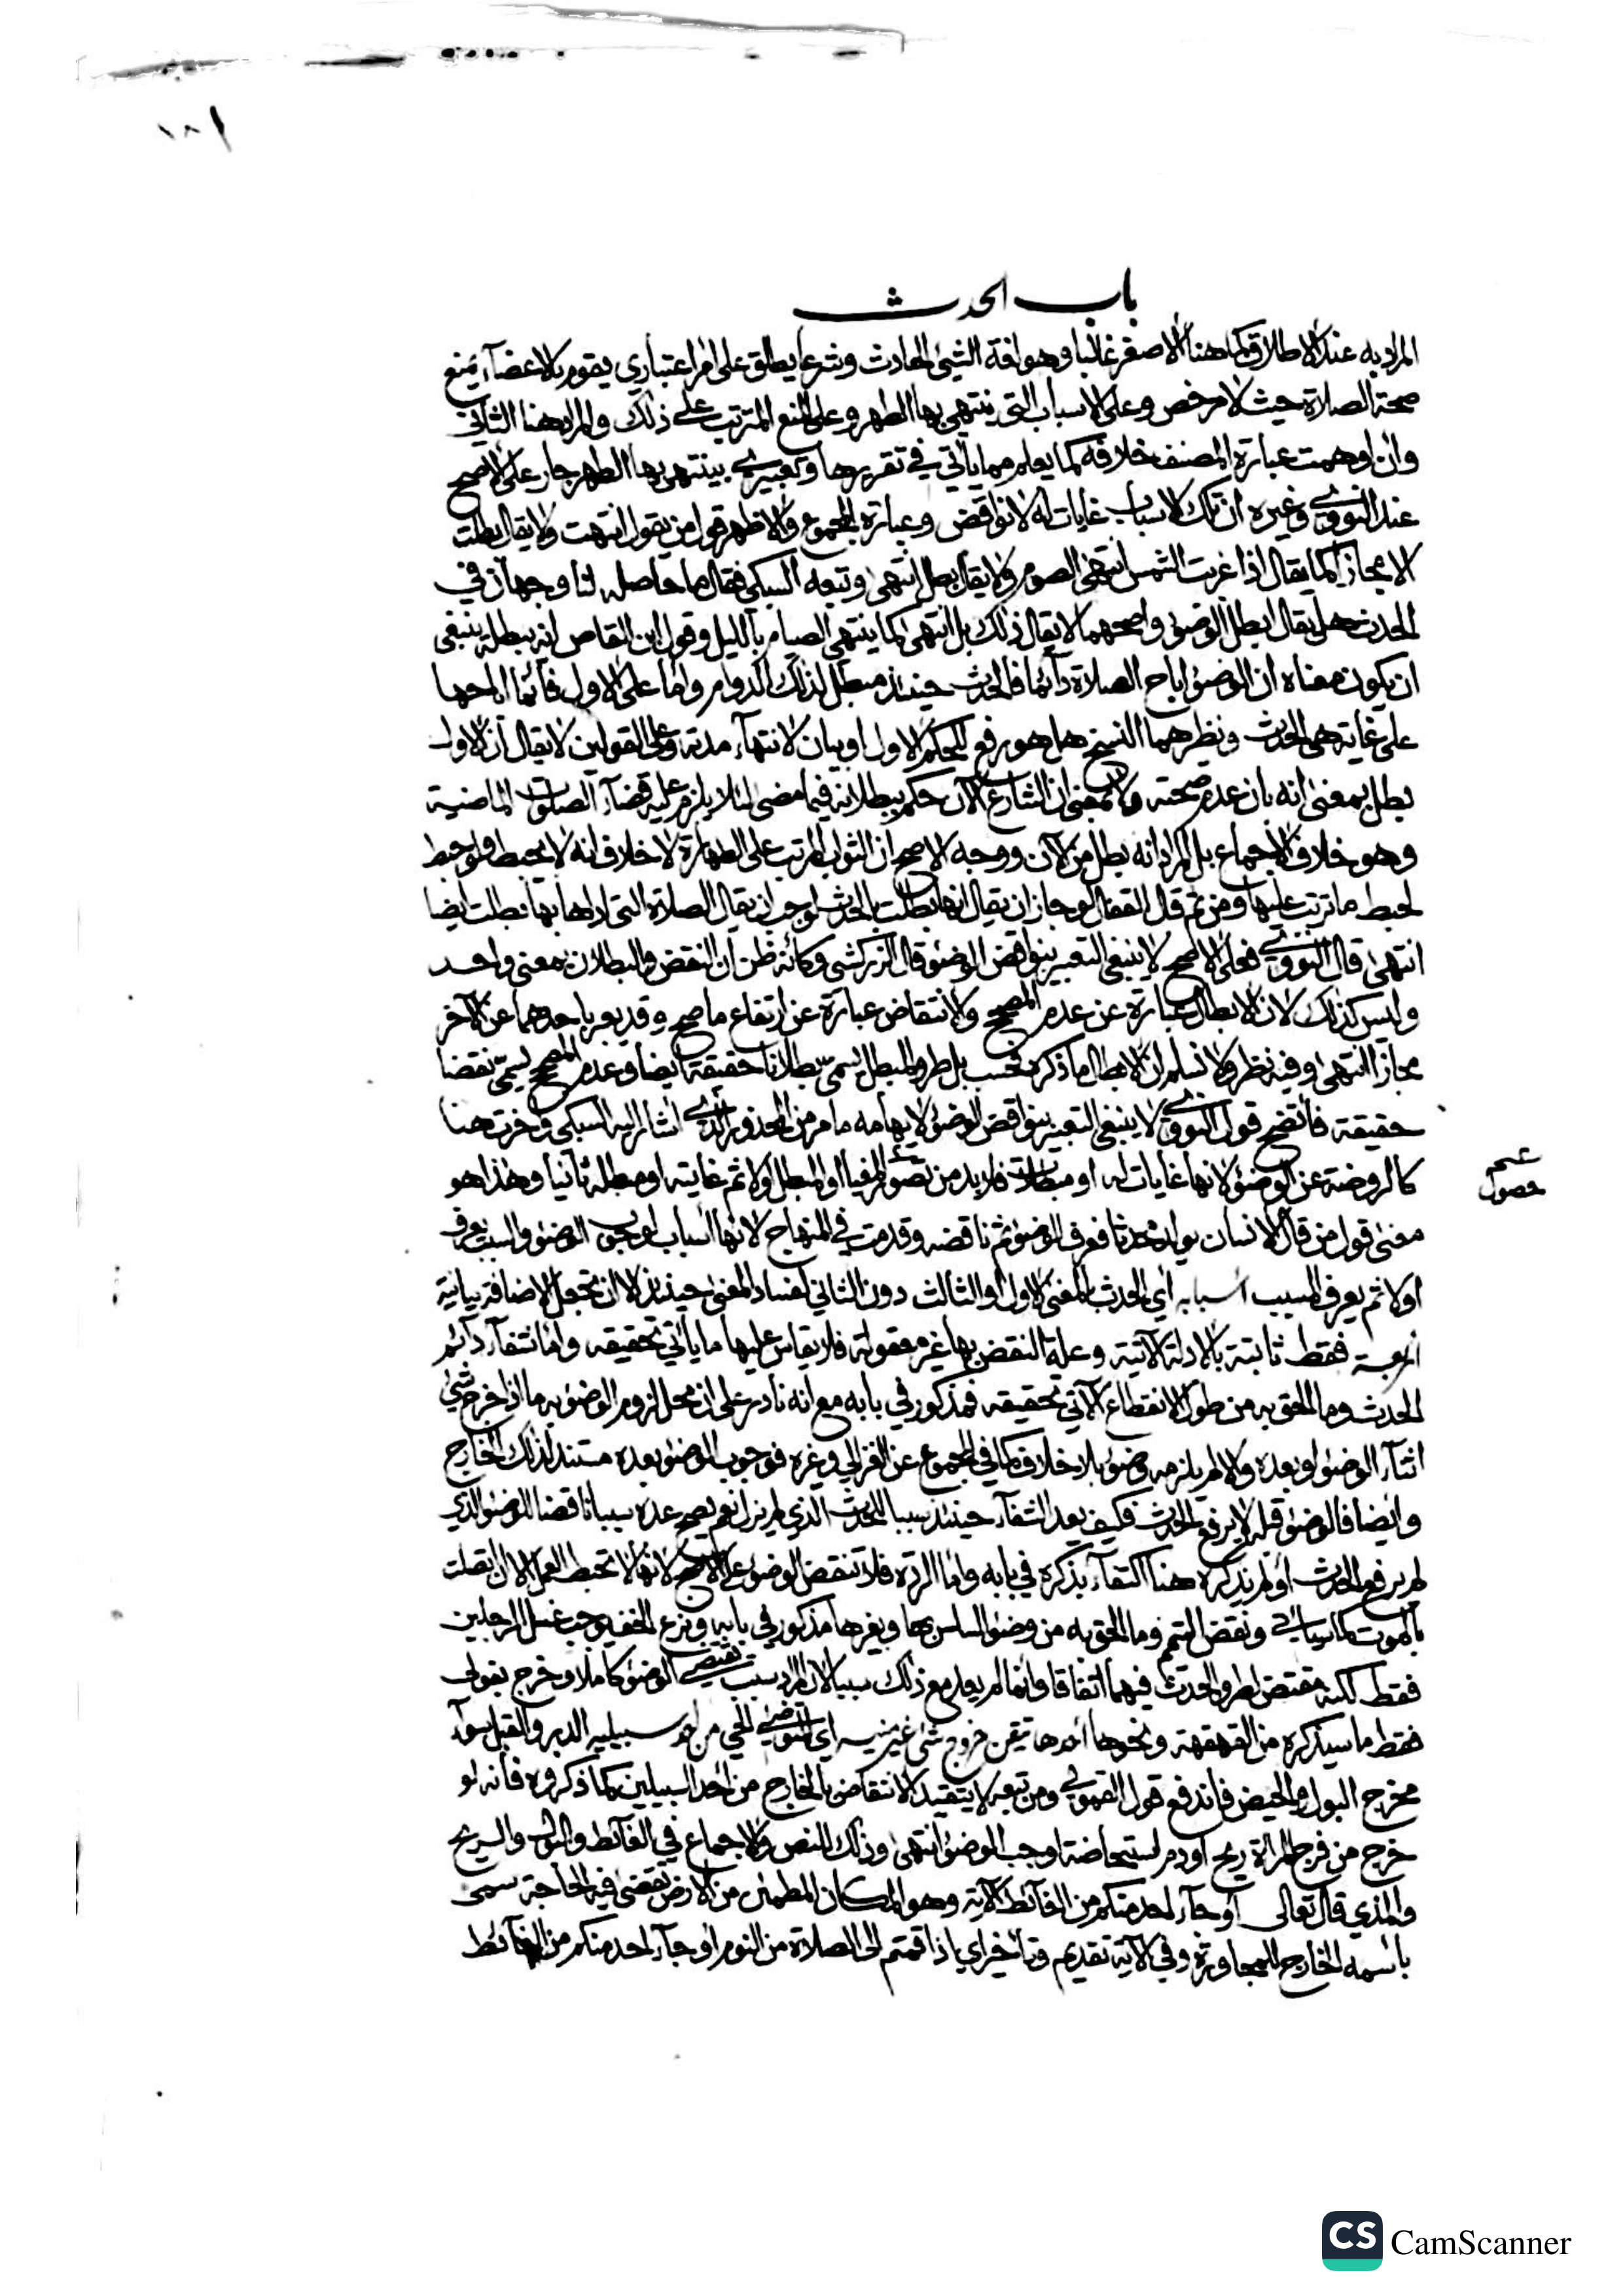 ١٨١
باب الحدث
المراد به عند الاطلاق كما هنا الاصغر غالبا وهو لغة الشيئ الحادث وشرعا يطلق على امر اعتباري يقوم بالاعضاء يمنع
صحة الصلاة حيث لا مرخص وعلى الاسباب التي ينتهي بها الطهر وعلى المنع المترتب على ذلك والمراد هنا الثاني
وان اوهمت عبارة المصنف خلافه كما يعلم مما يأتي في تقريرها وتعبيري بينتهي بها الطهر جار على الاصح
عند النووي وغيره ان تلك الاسباب غايات له لا نواقض وعبارة المجموع والاظهر قول من يقول انتهت ولا يقال بطلت
الا مجازا كما يقال اذا غربت الشمس انتهى الصوم ولا يقال بطل انتهى وتبعه السبكي فقال ما حاصله لنا وجهان في
الحدث هل يقال ابطل الوضوء واصحهما لا يقال ذلك بل انتهى كما ينتهي الصيام بالليل وقول ابن القاص انه يبطله ينبغي
ان يكون معناه ان الوضوء اباح الصلاة دائما فالحدث حينئذ مبطل لذلك الدوام واما على الاول فانما اباحها
على غاية هي الحدث ونظيرهما النسخ هل هو رفع للحكم الاول او بيان لانتهاء مدته وعلى القولين لا يقال ان الاول
بطل بمعنى انه بان عدم صحته ولا بمعنى ان الشارع الآن حكم ببطلانه فيما مضى لئلا يلزم عليه قضاء الصلوات الماضية
وهو خلاف الاجماع بل المراد انه بطل من الآن ووجه الاصح ان الثواب المرتب على الطهارة لا خلاف انه لا يحبط ولو حبط
لحبط ما ترتب عليها ومن ثم قال القفال لو جاز ان يقال انها بطلت بالحدث لوجب ان يقال الصلاة التي اداها بها بطلت ايضا
انتهى قال النووي فعلى الاصح لا ينبغي التعبير بنواقض الوضوء قال الزركشي وكأنه ظن ان النقض والبطلان بمعنى واحد
وليس كذلك لان الابطال عبارة عن عدم المصحح والانتقاض عبارة عن ارتفاع ما صح وقد يعبر باحدهما عن الآخر
مجازا انتهى وفيه نظر ولا نسلم ان الابطال ما ذكره فحسب بل طرو المبطل يسمى بطلانا حقيقة ايضا وعدم المصحح يسمى نقضا
حقيقة فاتضح قول النووي لا ينبغي التعبير بنواقض الوضوء لايهامه ما مر من المحذور الذي اشار اليه السبكي واخرت هنا
كالروضة عن الوضوء لانها غايات له او مبطلات فلا بد من تصور المغيا او المبطل اولا ثم غايته او مبطله ثانيا وهذا هو
معنى قول من قال الانسان يولد محدثا فعرف الوضوء ثم ناقضه وقدمت في المنهاج لانها اسباب لوجوب الوضوء والسبب يعرف
اولا ثم يعرف المسبب اسبابه اي الحدث بالمعنى الاول او الثالث دون الثاني لفساد المعنى حينئذ الا ان تجعل الاضافة بيانية
اربعة فقط ثابتة بالادلة الآتية وعلة النقض بها غير معقولة فلا يقاس عليها ما يأتي تحقيقه واما شفاء دائم
الحدث وما الحق به من طول الانقطاع الآتي تحقيقه فمذكور في بابه مع انه نادر على ان محل لزوم الوضوء به ما اذا خرج شئ
اثناء الوضوء او بعده والا لم يلزمه وضوء بلا خلاف كما في المجموع عن الغزالي وغيره فوجوب الوضوء بعده مستند لذلك الخارج
وايضا فالوضوء قبله لا يرفع الحدث فكيف يعد الشفاء حينئذ سببا للحدث الذي لم يزل نعم يصح عده سببا ناقضا للوضوء الذي
لم يرفع الحدث او لم يذكره هنا اكتفاء بذكره في بابه واما الردة فلا تنقض الوضوء على الاصح لانها لا تحبط العمل الا ان اتصلت
بالموت كما سيأتي ونقض التيمم وما الحق به من وضوء السلس بها وبغيرها مذكور في بابه ونزع الخف يوجب غسل الرجلين
فقط لكنه مقتض لطرو الحدث فيهما اتفاقا وانما لم يعد مع ذلك سببا لان المراد سبب يقتضي الوضوء كاملا وخرج بقولي
فقط ما سيذكره من القهقهة ونحوها احدها تيقن خروج شئ غير منيه اي المتوضئ الحي من احد سبيليه الدبر والقبل سواء
مخرج البول والحيض فاندفع قول القمولي ومن تبعه لا يتقيد الانتقاض بالخارج من احد السبيلين كما ذكروه فانه لو
خرج من فرج المرأة ريح او دم استحاضة اوجب الوضوء انتهى وذلك للنص والاجماع في الغائط والبول والريح
والمذي قال تعالى او جاء احد منكم من الغائط الآية وهو المكان المطمئن من الارض تقضى فيه الحاجة سمى
باسمه الخارج للمجاورة وفي الآية تقديم وتأخير اي اذا قمتم الى الصلاة من النوم او جاء احد منكم من الغائط
حصول
CS CamScanner